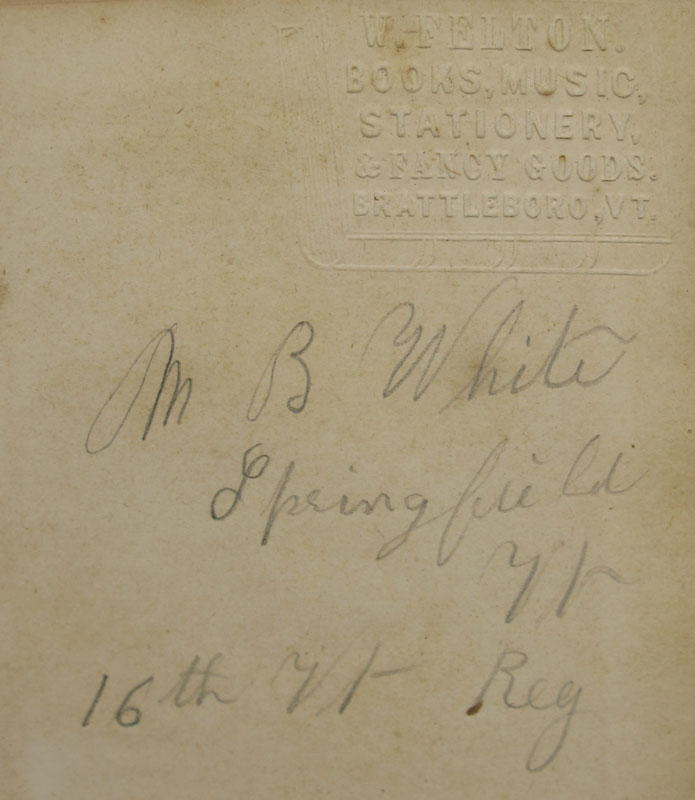 W. FELTON.
BOOKS, MUSIC,
STATIONERY,
& FANCY GOODS.
BRATTLEBORO, VT.
M B White
Springfield
Vt
16th Vt Reg